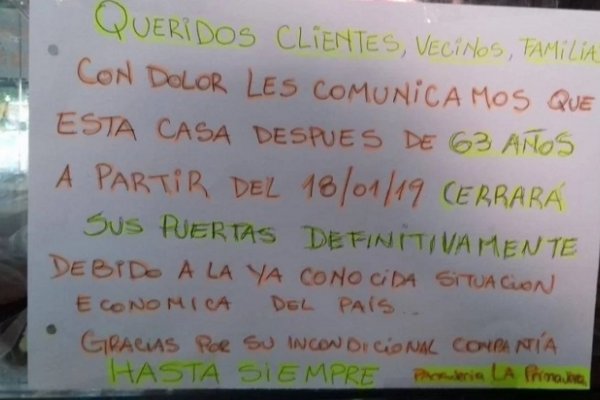 QUERIDOS CLIENTES, VECINOS, FAMILIA
CON DOLOR LES COMUNICAMOS QUE
ESTA CASA DESPUES DE 63 AÑOS
A PARTIR DEL 18/01/19 CERRARÁ
SUS PUERTAS DEFINITIVAMENTE
DEBIDO A LA YA CONOCIDA SITUACION
ECONOMICA DEL PAÍS..
GRACIAS POR SU INCONDICIONAL COMPANÍA
HASTA SIEMPRE LA Primavera